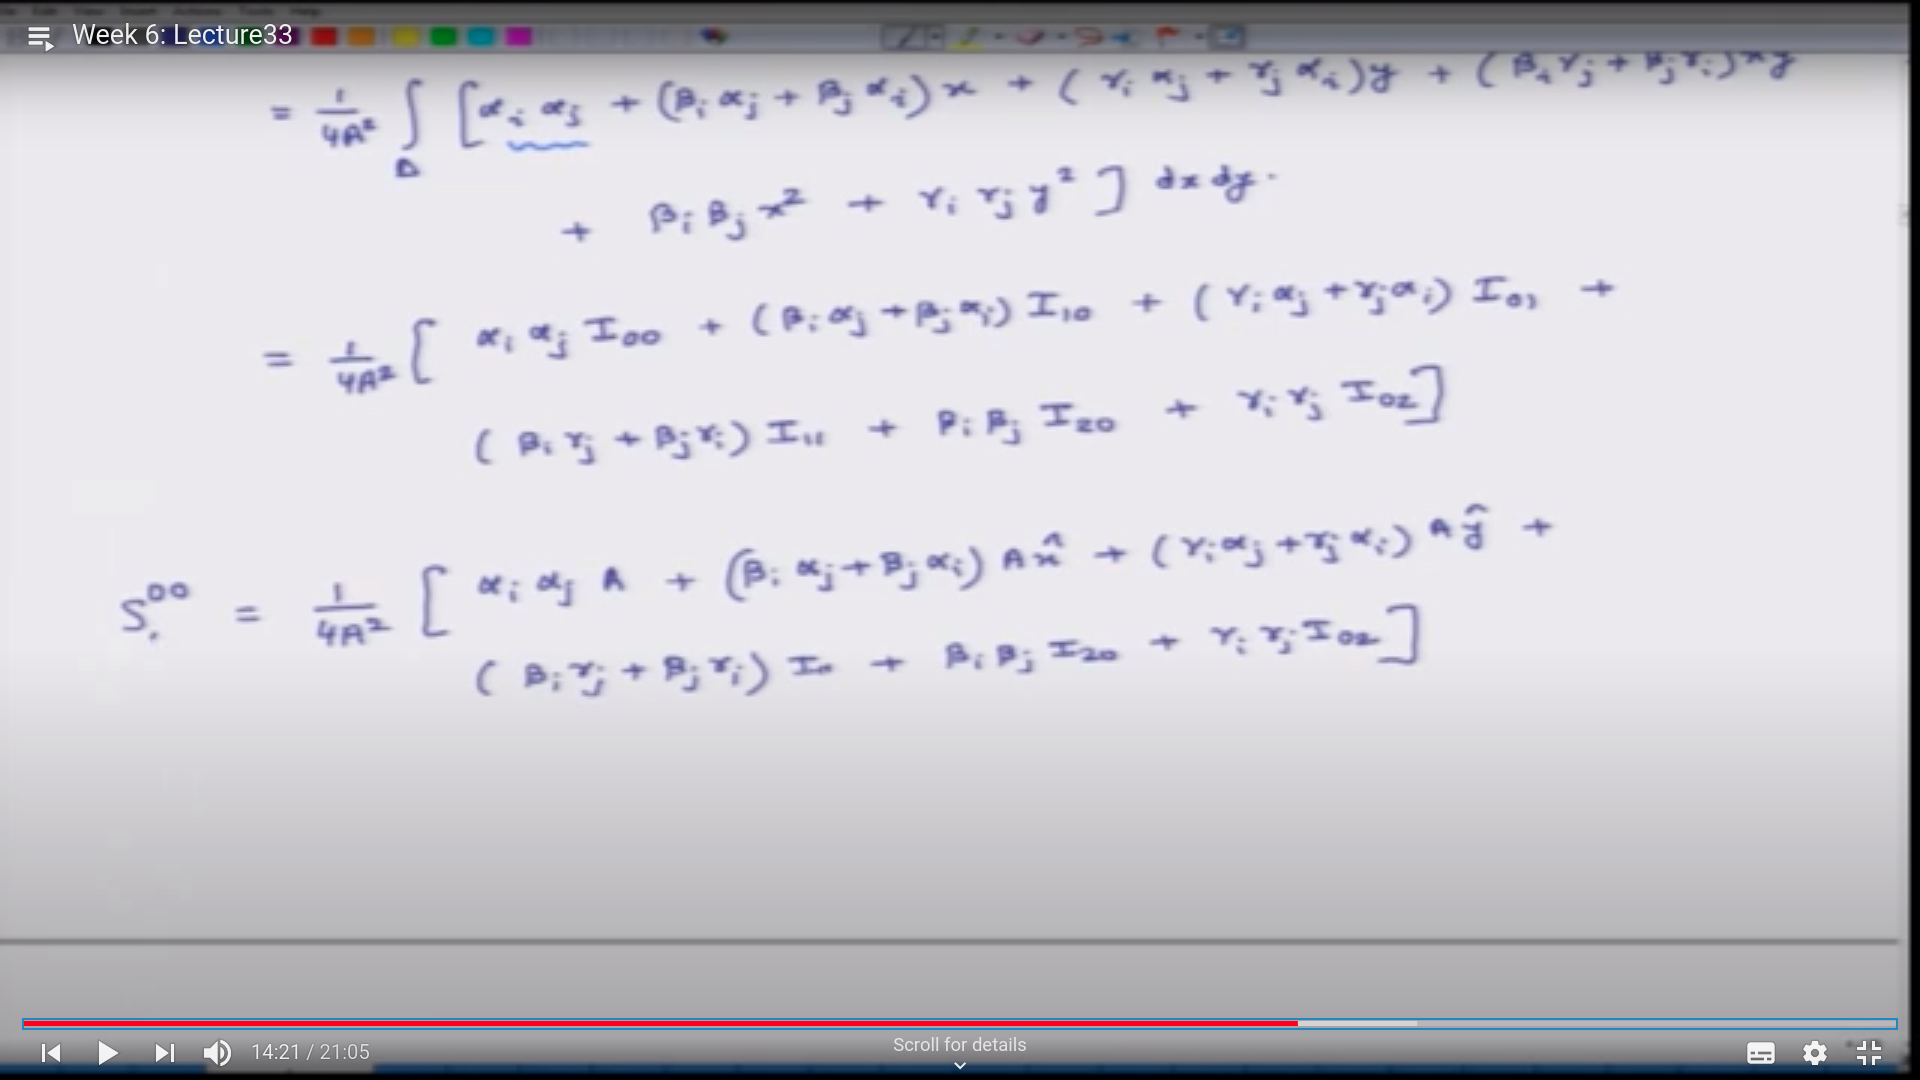 File Edit View Insert Actions Tools Help
Week 6: Lecture33
= 1/4A² ∫_Δ [ αᵢ αⱼ + (βᵢ αⱼ + βⱼ αᵢ) x + ( γᵢ αⱼ + γⱼ αᵢ ) y + ( βᵢ γⱼ + βⱼ γᵢ ) xy
+ βᵢ βⱼ x² + γᵢ γⱼ y² ] dx dy.
= 1/4A² [ αᵢ αⱼ I₀₀ + ( βᵢ αⱼ + βⱼ αᵢ ) I₁₀ + ( γᵢ αⱼ + γⱼ αᵢ ) I₀₁ +
( βᵢ γⱼ + βⱼ γᵢ ) I₁₁ + βᵢ βⱼ I₂₀ + γᵢ γⱼ I₀₂ ]
S⁰⁰ = 1/4A² [ αᵢ αⱼ A + ( βᵢ αⱼ + βⱼ αᵢ ) A x̂ + ( γᵢ αⱼ + γⱼ αᵢ ) A ŷ +
( βᵢ γⱼ + βⱼ γᵢ ) I₁₁ + βᵢ βⱼ I₂₀ + γᵢ γⱼ I₀₂ ]
14:21 / 21:05
Scroll for details